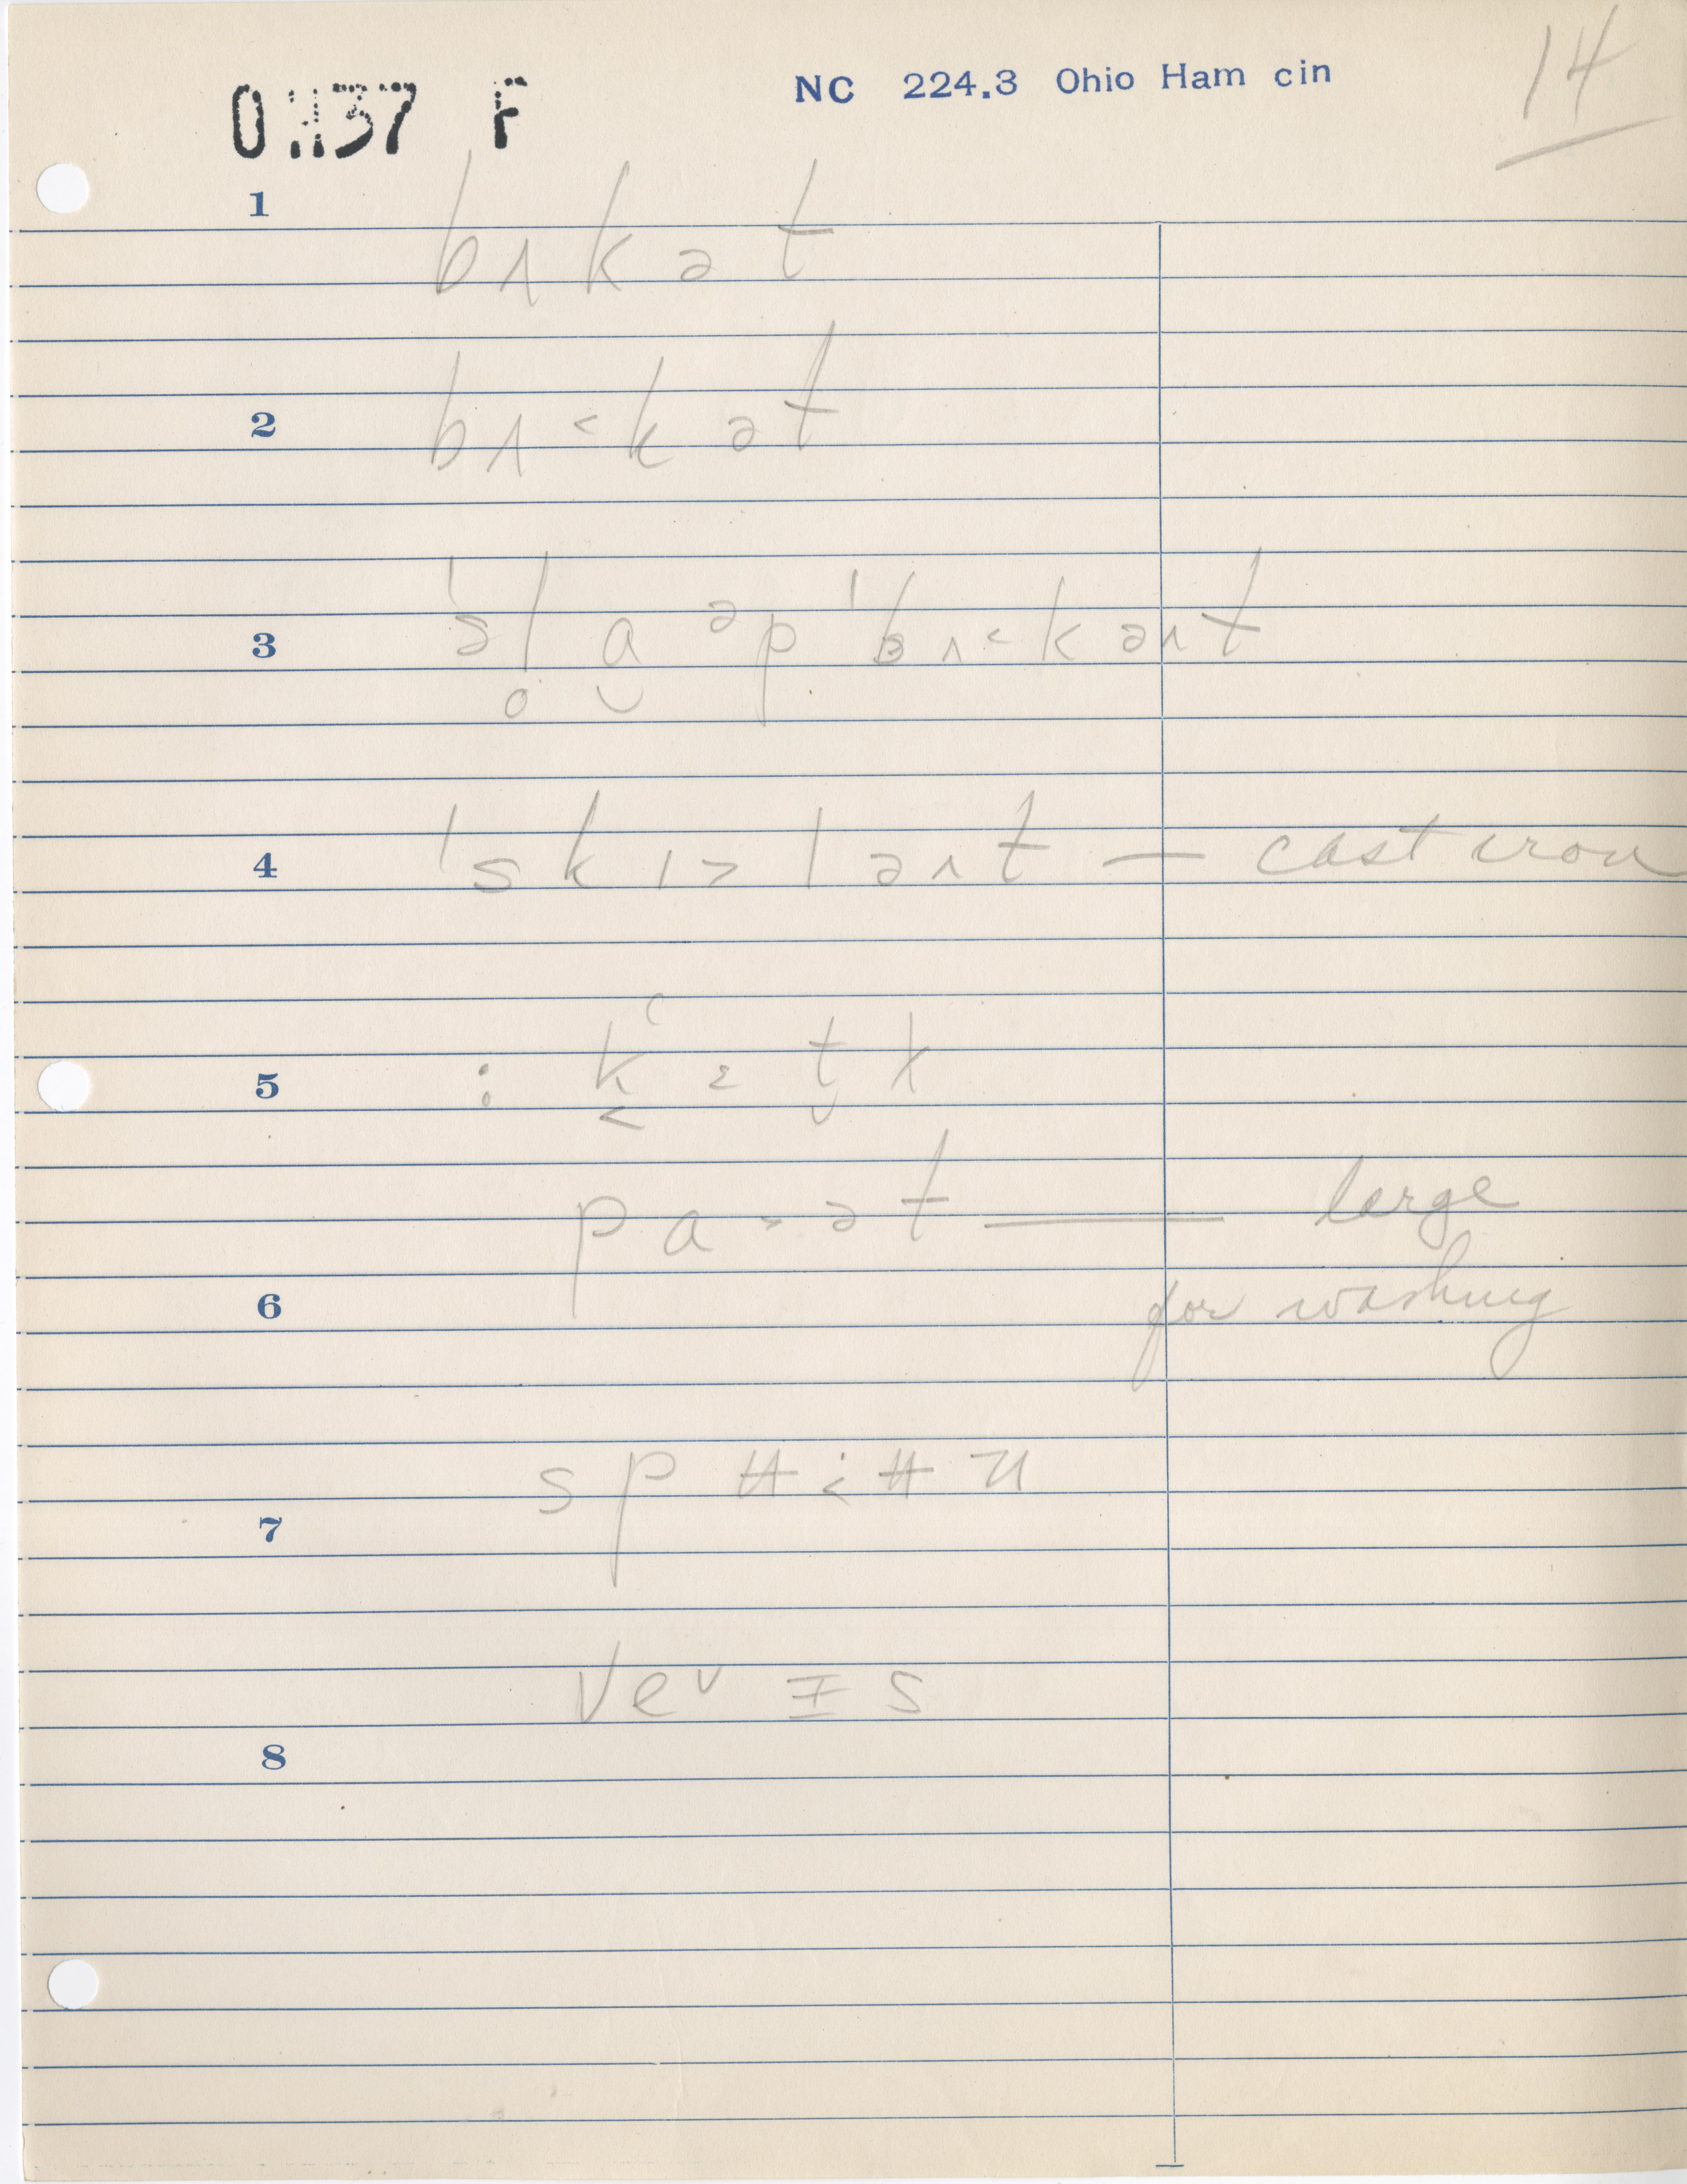 14
NC 224.3 Ohio Ham cin
OH37 F
1 bʌkət
2 bʌ˂kət
3 ˈsl̥a̯ᵊp ˈbʌ˂kəɪt
4 ˈskɪ˃ləɪt — cast iron
5 : k̬ʻɛt̬ɫ
pa˃ət — large
6 for washing
7 spʉiʉn
veᵛɪs
8